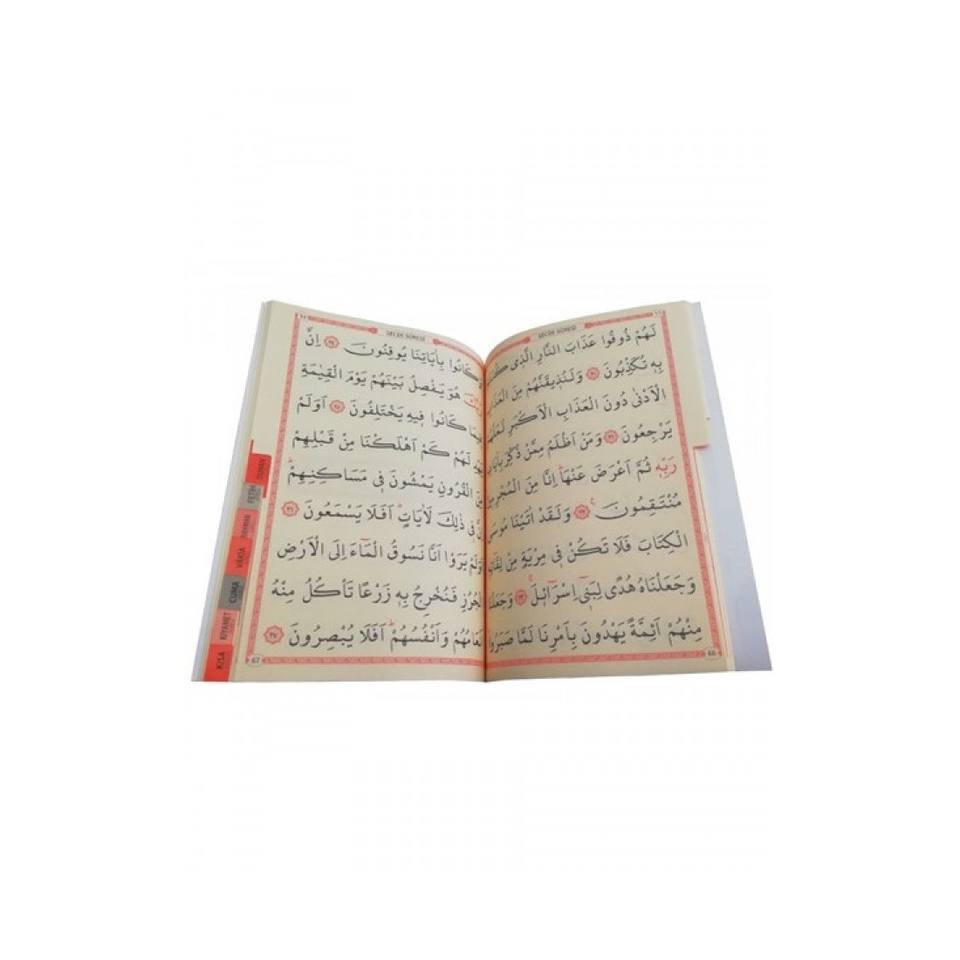 SECDE SÛRESİ
لَهُمْ ذُوقُوا عَذَابَ النَّارِ الَّذ۪ي
بِه۪ تُكَذِّبُونَ ﴿٢٠﴾ وَلَنُذ۪يقَنَّهُمْ مِنَ
الْاَدْنٰى دُونَ الْعَذَابِ الْاَكْبَرِ
يَرْجِعُونَ ﴿٢١﴾ وَمَنْ اَظْلَمُ مِمَّنْ ذُكِّرَ
رَبِّه۪ ثُمَّ اَعْرَضَ عَنْهَاۜ اِنَّا مِنَ
مُنْتَقِمُونَ ﴿٢٢﴾ وَلَقَدْ اٰتَيْنَا مُوسَى
الْكِتَابَ فَلَا تَكُنْ ف۪ي مِرْيَةٍ مِنْ
وَجَعَلْنَاهُ هُدًى لِبَن۪ٓي اِسْرَٓائ۪لَۚ ﴿٢٣﴾
مِنْهُمْ اَئِمَّةً يَهْدُونَ بِاَمْرِنَا لَمَّا صَبَرُوا
66
SECDE SÛRESİ
كَانُوا بِاٰيَاتِنَا يُوقِنُونَ ﴿٢٤﴾ اِنَّ
هُوَ يَفْصِلُ بَيْنَهُمْ يَوْمَ الْقِيٰمَةِ
كَانُوا ف۪يهِ يَخْتَلِفُونَ ﴿٢٥﴾ اَوَلَمْ
لَهُمْ كَمْ اَهْلَكْنَا مِنْ قَبْلِهِمْ
الْقُرُونِ يَمْشُونَ ف۪ي مَسَاكِنِهِمْۜ
ف۪ي ذٰلِكَ لَاٰيَاتٍۜ اَفَلَا يَسْمَعُونَ ﴿٢٦﴾
يَرَوْا اَنَّا نَسُوقُ الْمَٓاءَ اِلَى الْاَرْضِ
الْجُرُزِ فَنُخْرِجُ بِه۪ زَرْعًا تَأْكُلُ مِنْهُ
وَاَنْفُسُهُمْۜ اَفَلَا يُبْصِرُونَ ﴿٢٧﴾
67
FETİH
VAKIA
CUMA
KIYAMET